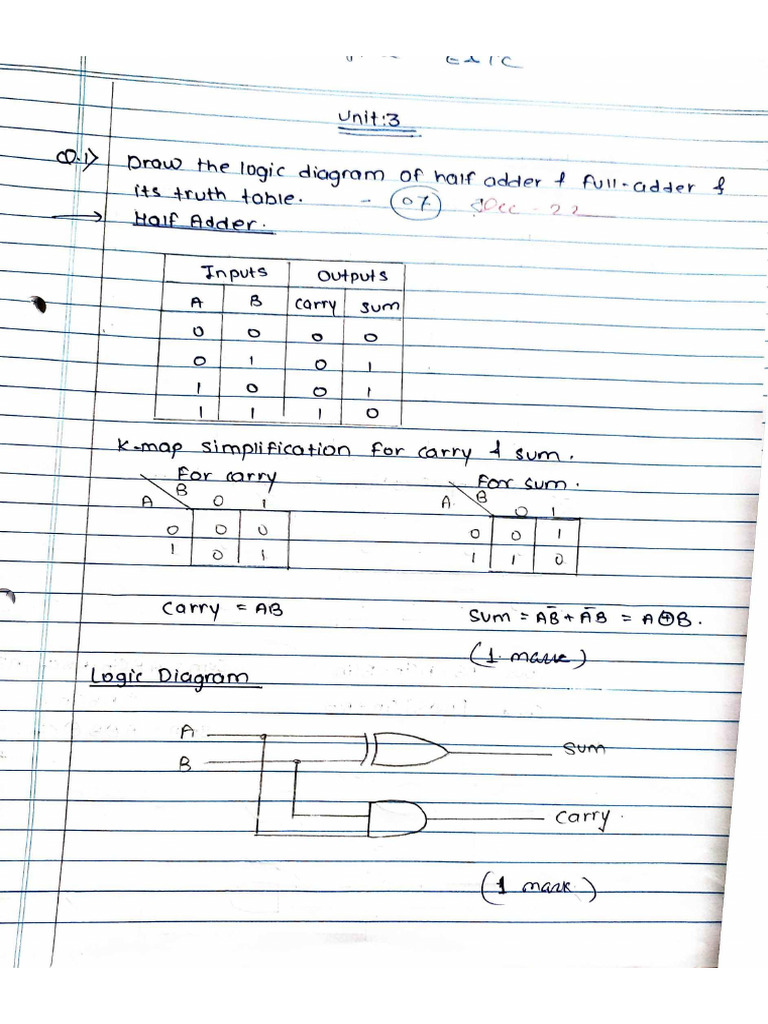 Unit:3
Q.1> Draw the logic diagram of half adder & full-adder &
its truth table. - 07 Dec - 22
→ Half Adder.
Inputs Outputs
A B Carry Sum
0 0 0 0
0 1 0 1
1 0 0 1
1 1 1 0
K-map simplification for carry & sum.
For carry For sum.
A B 0 1 A B 0 1
0 0 0 0 0 1
1 0 1 1 1 0
Carry = AB Sum = AB̄ + ĀB = A⊕B.
(1 mark)
Logic Diagram
A Sum
B
Carry.
(1 mark)